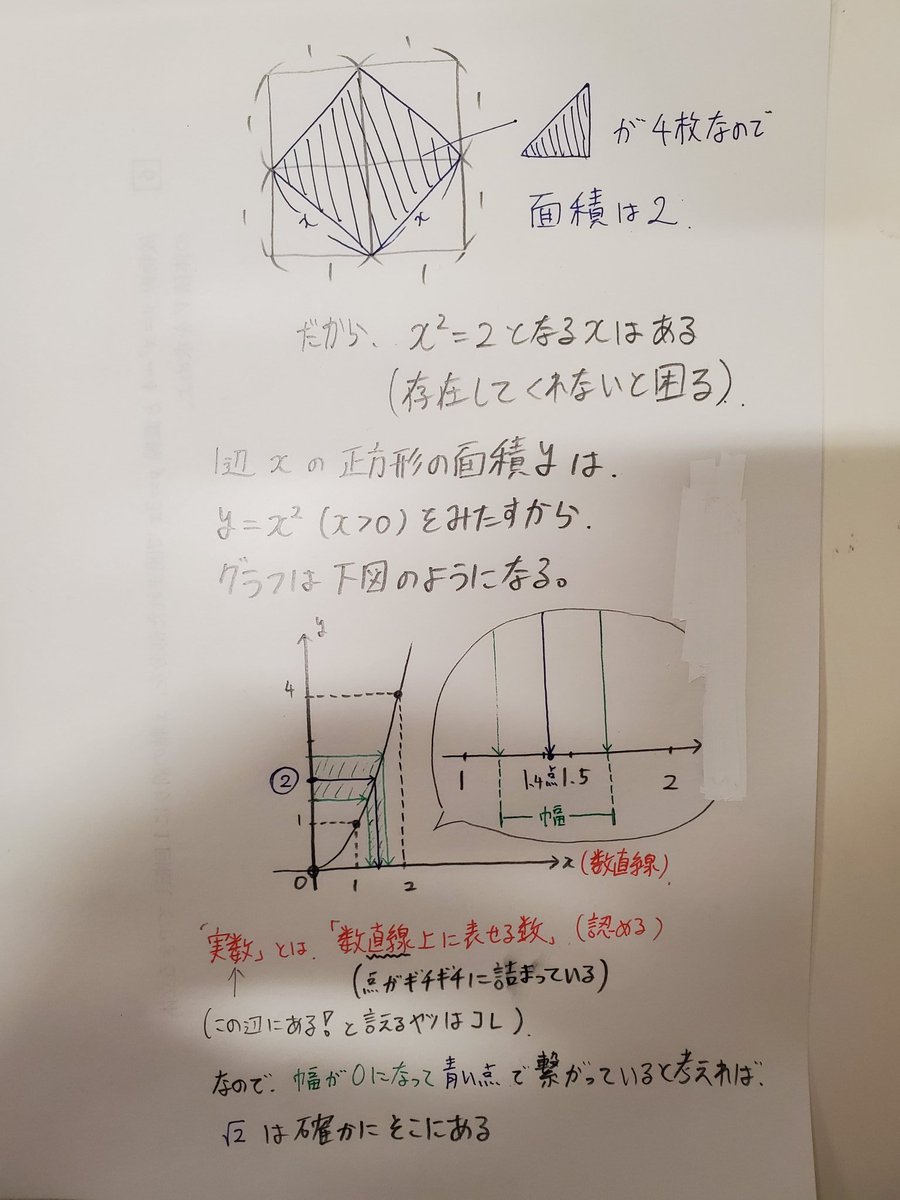 1 1
1 1
が4枚なので
x x
1 1
面積は2.
1 1
だから、x²=2となるxはある
(存在してくれないと困る).
1辺xの正方形の面積yは.
y=x²(x>0)をみたすから.
グラフは下図のようになる。
y
4
②
1
0 1 2
x(数直線)
1 1.4点1.5 2
幅
「実数」とは、「数直線上に表せる数」.(認める)
(点がギチギチに詰まっている)
(この辺にある!と言えるヤツはコレ).
なので、幅が0になって青い点で繋がっていると考えれば、
√2は確かにそこにある